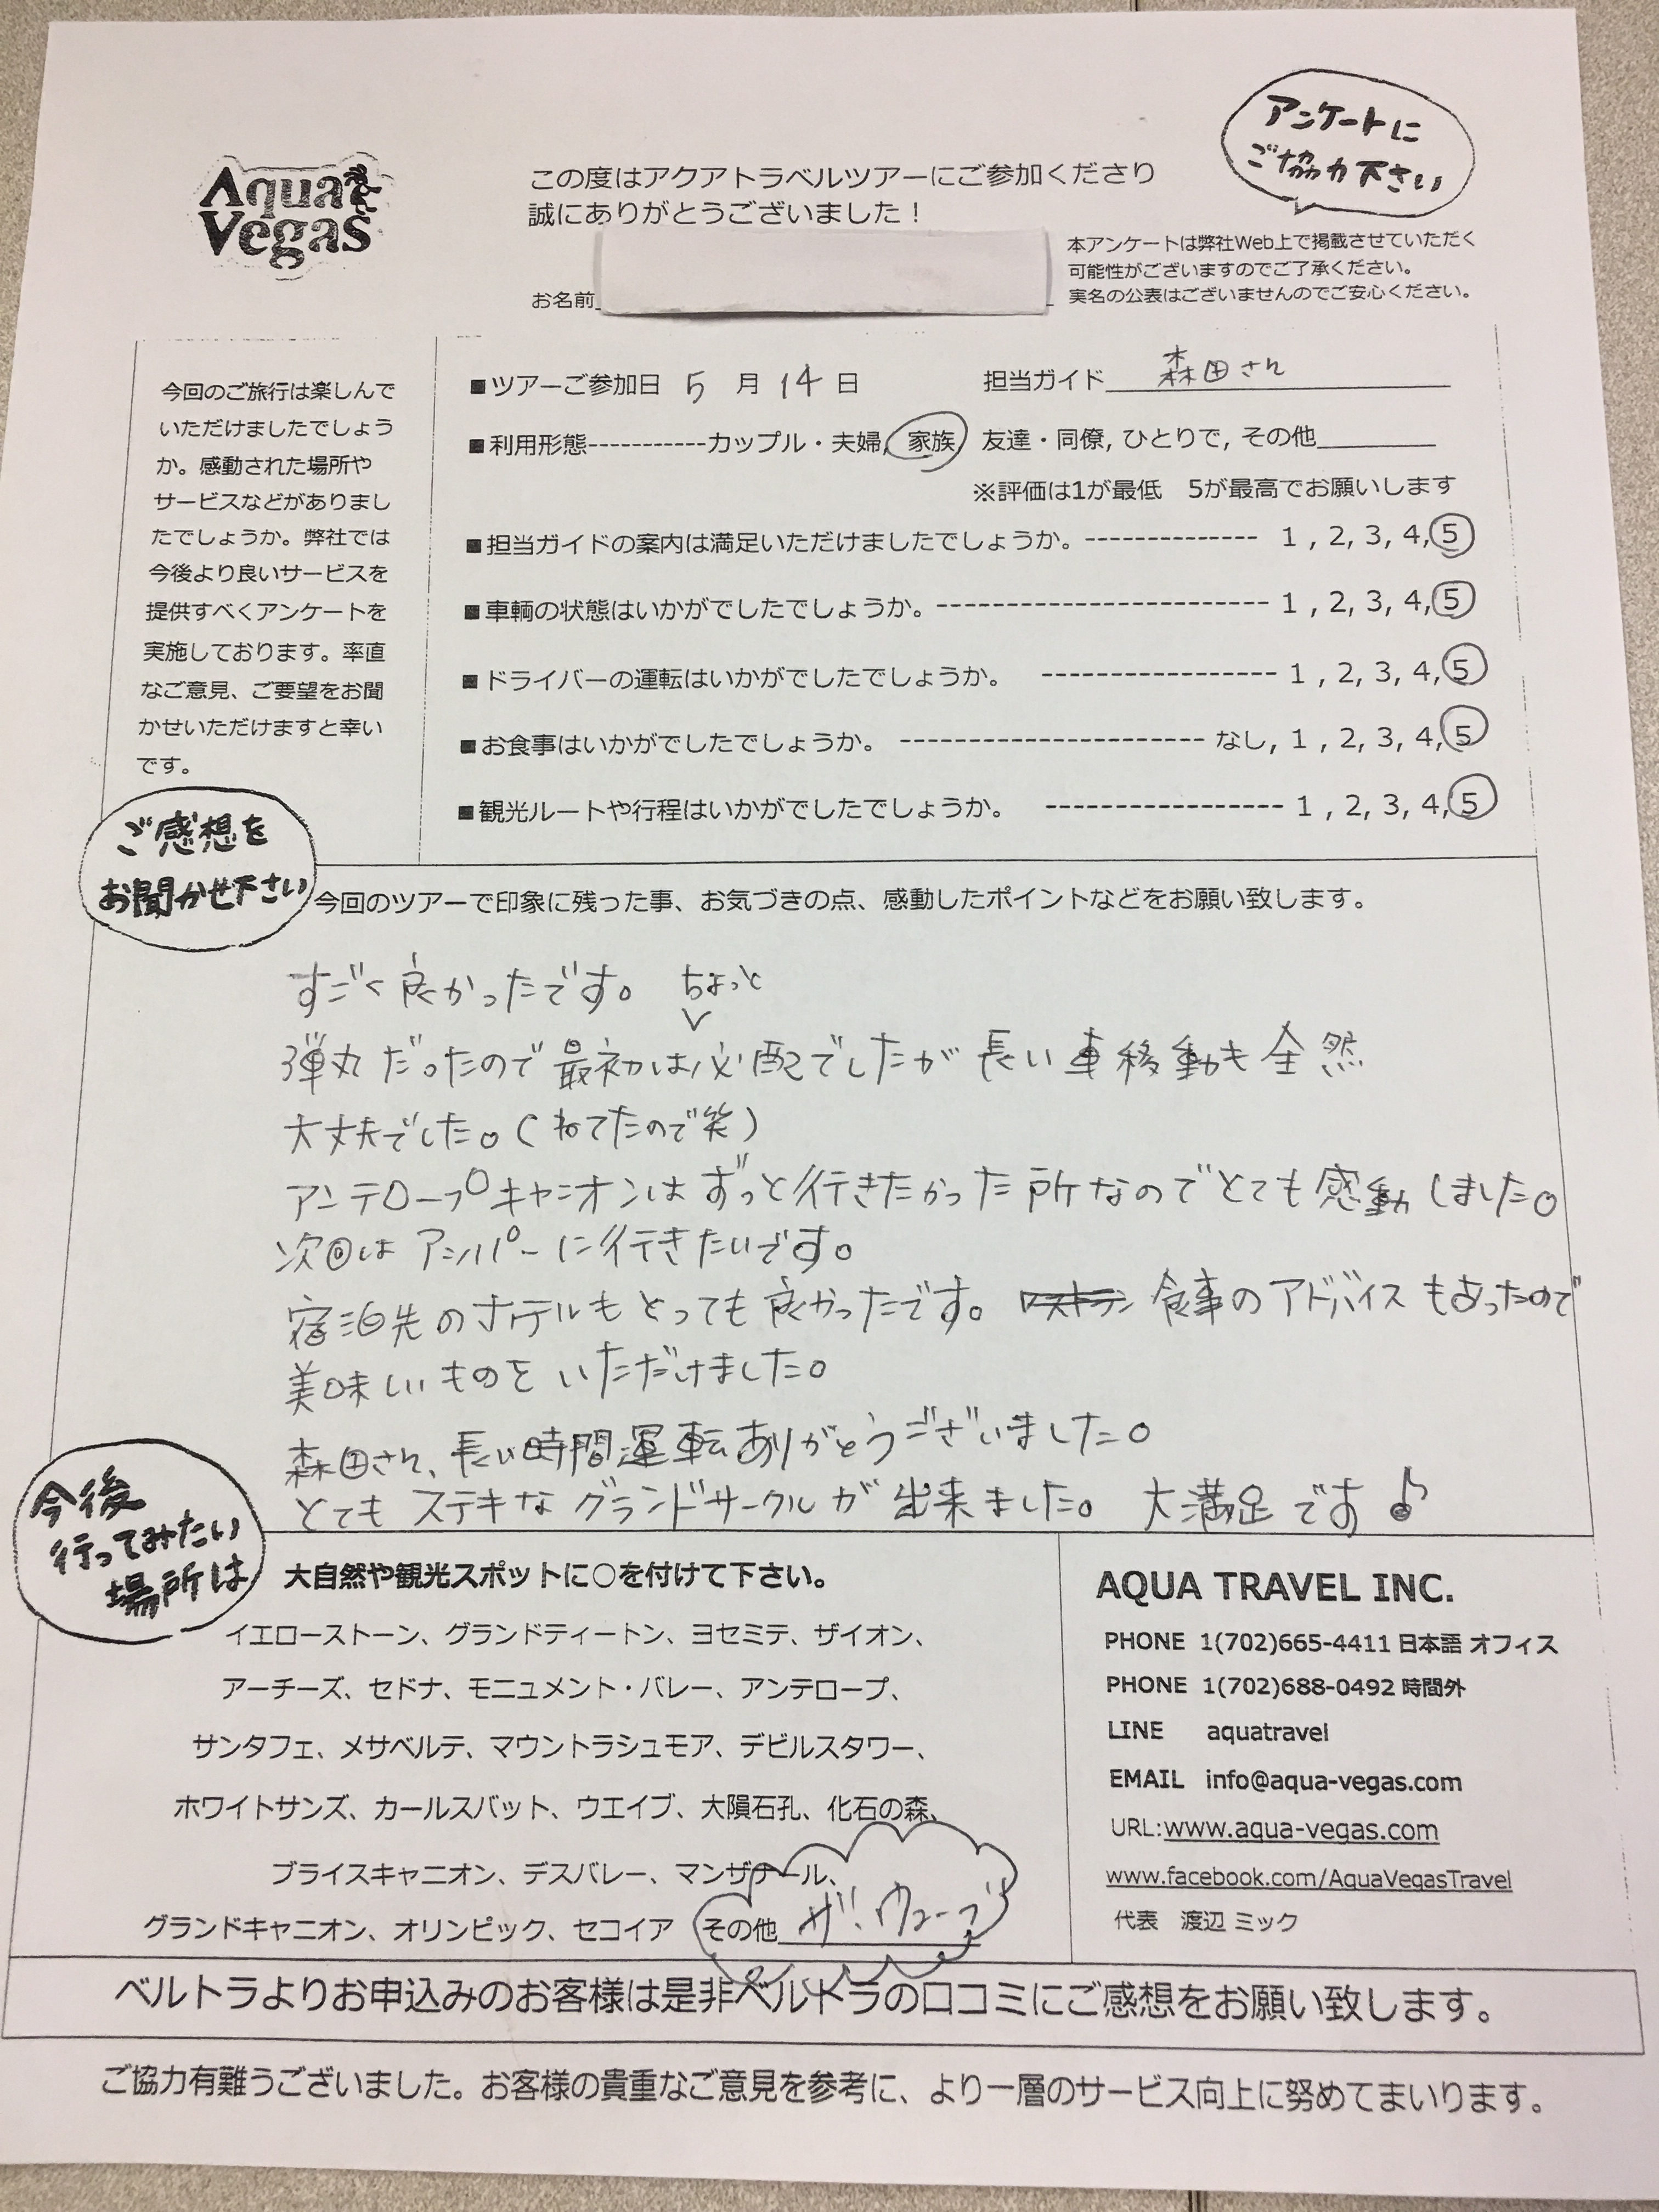 アンケートに
ご協力下さい
Aqua
Vegas
この度はアクアトラベルツアーにご参加くださり
誠にありがとうございました！
お名前
本アンケートは弊社Web上で掲載させていただく
可能性がございますのでご了承ください。
実名の公表はございませんのでご安心ください。
今回のご旅行は楽しんで
いただけましたでしょう
か。感動された場所や
サービスなどがありまし
たでしょうか。弊社では
今後より良いサービスを
提供すべくアンケートを
実施しております。率直
なご意見、ご要望をお聞
かせいただけますと幸い
です。
■ツアーご参加日 5 月 14 日 担当ガイド 森田さん
■利用形態-----------カップル・夫婦, 家族, 友達・同僚, ひとりで, その他
※評価は1が最低 5が最高でお願いします
■担当ガイドの案内は満足いただけましたでしょうか。------------- 1 , 2, 3, 4, 5
■車輌の状態はいかがでしたでしょうか。------------------------- 1 , 2, 3, 4, 5
■ドライバーの運転はいかがでしたでしょうか。 ----------------- 1 , 2, 3, 4, 5
■お食事はいかがでしたでしょうか。 ---------------------- なし, 1 , 2, 3, 4, 5
■観光ルートや行程はいかがでしたでしょうか。 ----------------- 1 , 2, 3, 4, 5
ご感想を
お聞かせ下さい
今回のツアーで印象に残った事、お気づきの点、感動したポイントなどをお願い致します。
すごく良かったです。 ちょっと
弾丸だったので最初は心配でしたが長い車移動も全然
大丈夫でした。(ねてたので笑)
アンテロープキャニオンはずっと行きたかった所なのでとても感動しました。
次回はアッパーに行きたいです。
宿泊先のホテルもとっても良かったです。 食事のアドバイスもあったので
美味しいものをいただけました。
森田さん、長い時間運転ありがとうございました。
とてもステキなグランドサークルが出来ました。大満足です♪
今後
行ってみたい
場所は
大自然や観光スポットに○を付けて下さい。
イエローストーン、グランドティートン、ヨセミテ、ザイオン、
アーチーズ、セドナ、モニュメント・バレー、アンテロープ、
サンタフェ、メサベルテ、マウントラシュモア、デビルスタワー、
ホワイトサンズ、カールスバット、ウエイブ、大隕石孔、化石の森、
ブライスキャニオン、デスバレー、マンザナール、
グランドキャニオン、オリンピック、セコイア その他 ザ・ウェーブ
AQUA TRAVEL INC.
PHONE 1(702)665-4411 日本語 オフィス
PHONE 1(702)688-0492 時間外
LINE aquatravel
EMAIL info@aqua-vegas.com
URL:www.aqua-vegas.com
www.facebook.com/AquaVegasTravel
代表 渡辺 ミック
ベルトラよりお申込みのお客様は是非ベルトラの口コミにご感想をお願い致します。
ご協力有難うございました。お客様の貴重なご意見を参考に、より一層のサービス向上に努めてまいります。